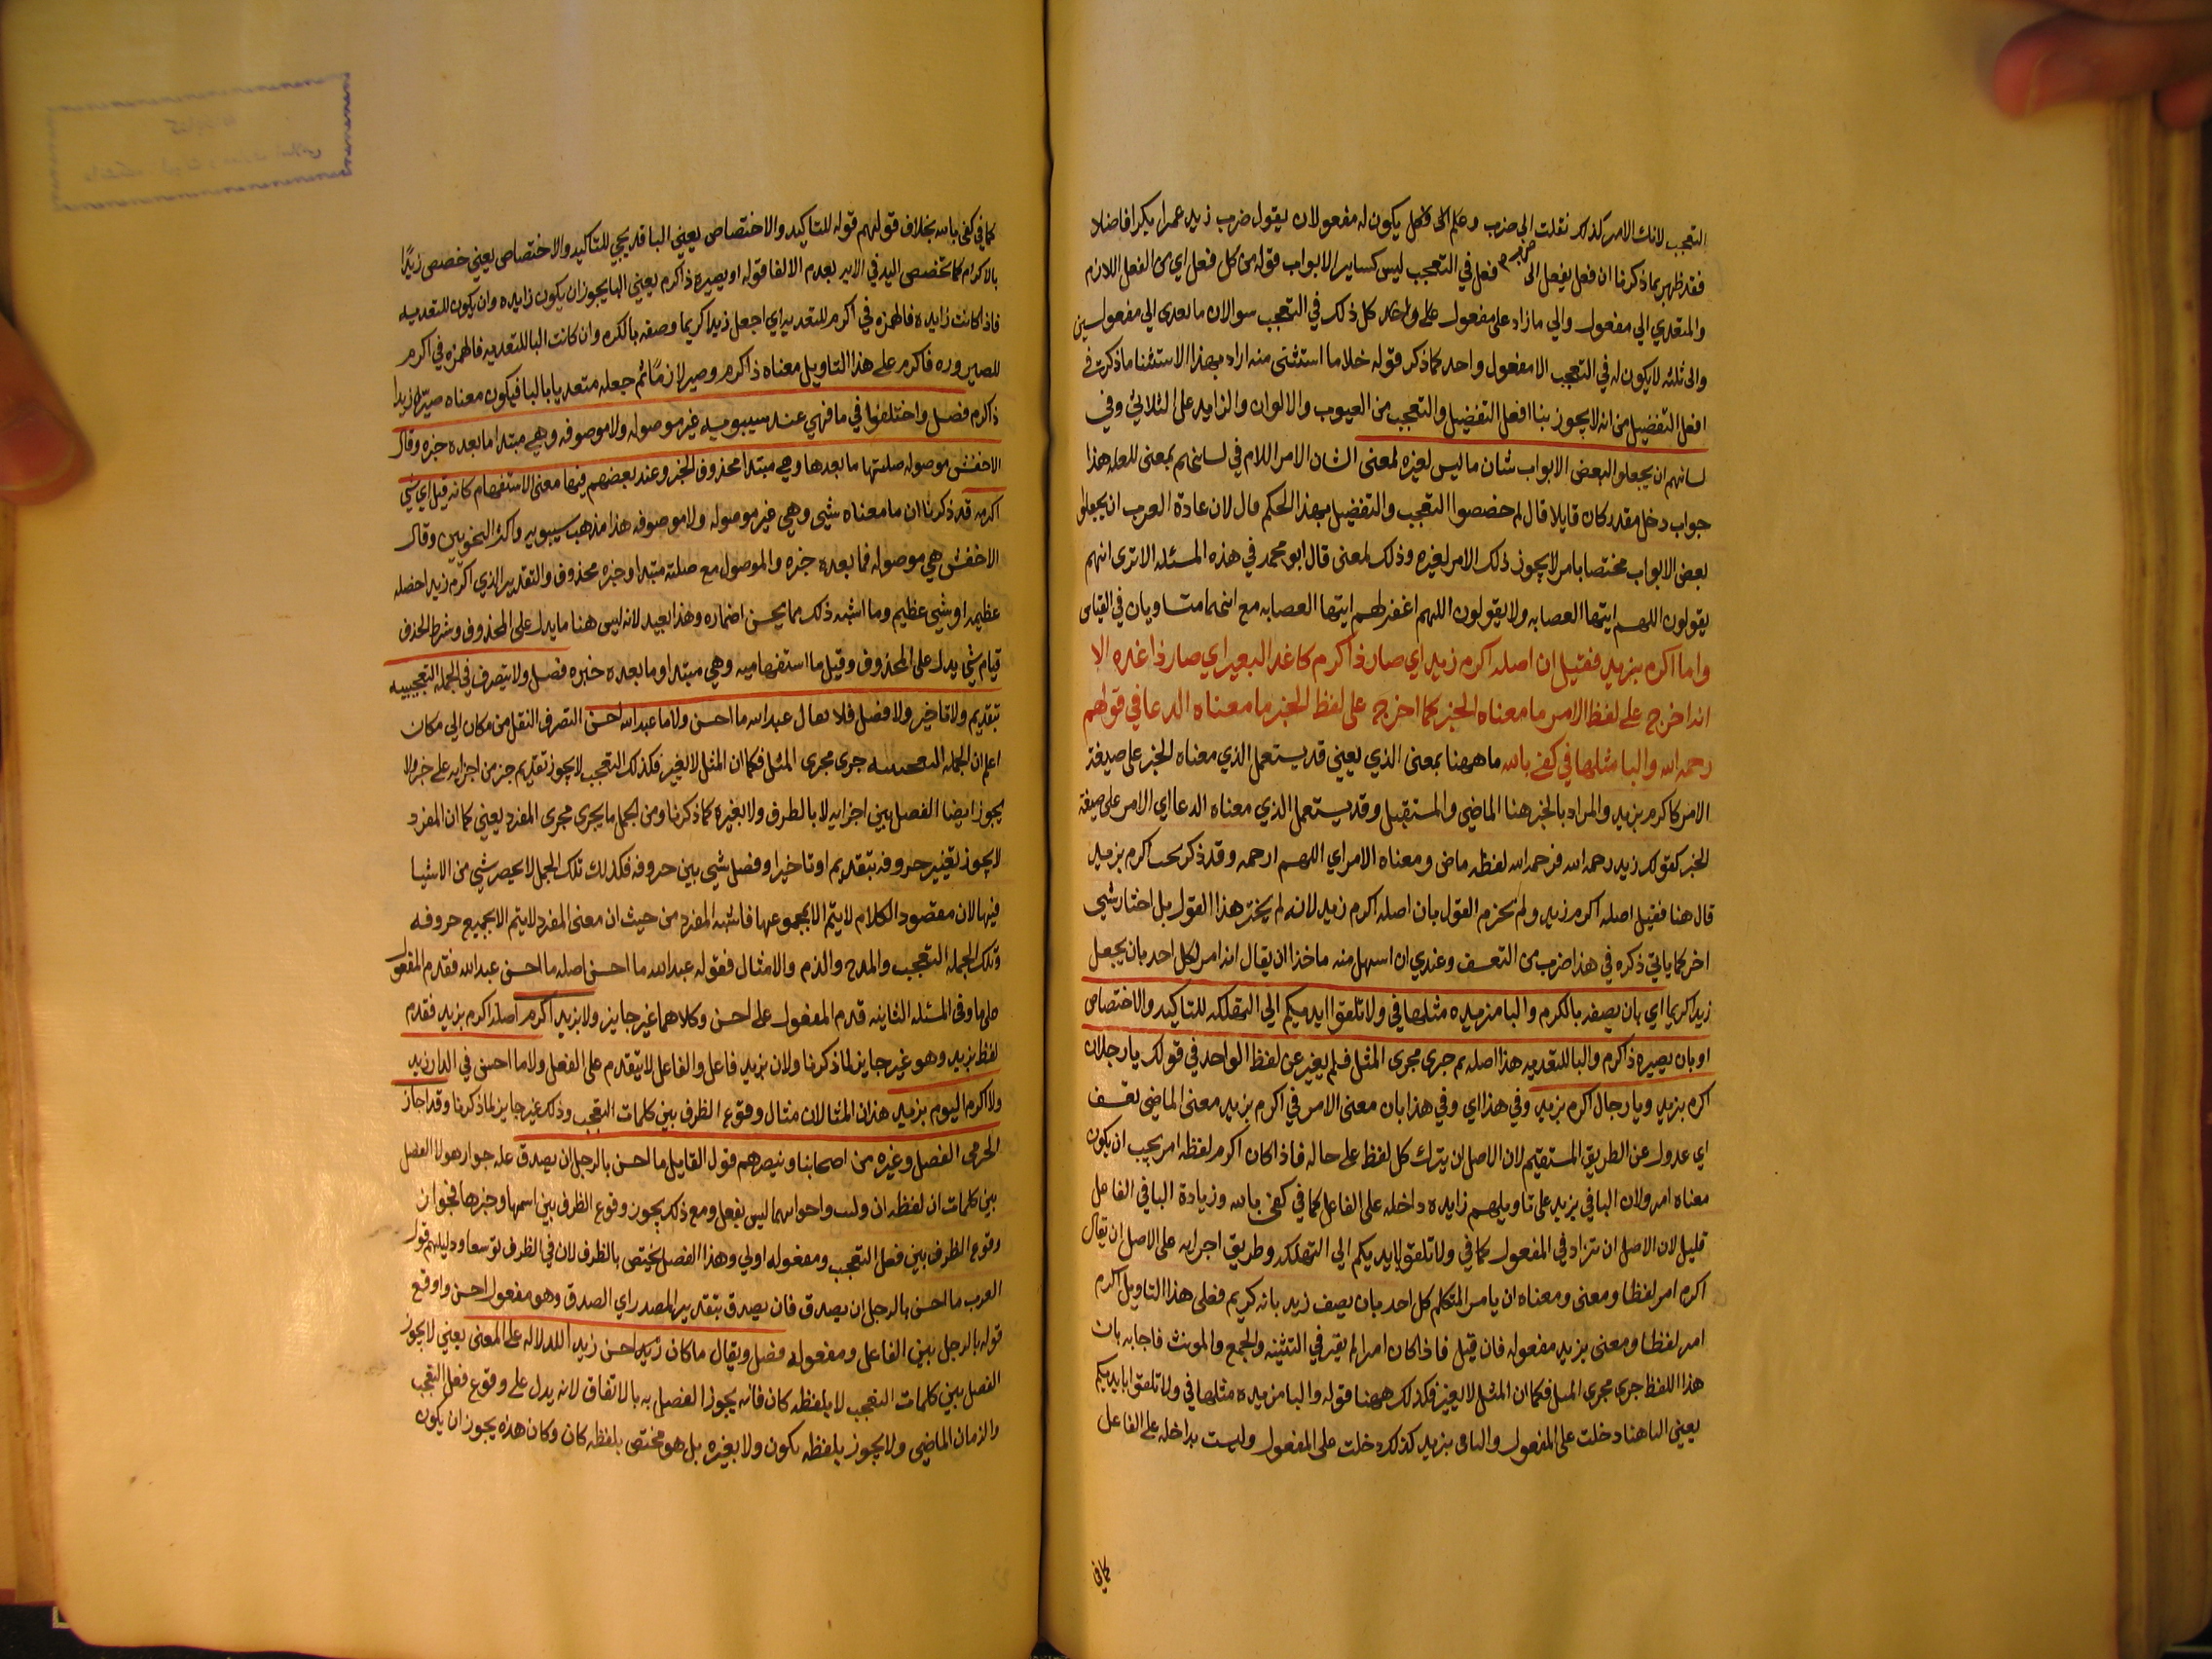 التعجب لانك الامر كذلك نقلت الي ضرب وعلم الى فعل يكون له مفعولان يقول ضرب زيد عمرا بكرا فاضلا
فقد ظهر بما ذكرنا ان فعل يفعل الى فعل في التعجب ليس كساير الابواب قوله من كل فعل اي من الفعل اللازم
والمتعدي الي مفعول والي ما زاد على مفعول على واحد كل ذلك في التعجب سوا لان ما تعدى الي مفعولين
والى ثلثه لا يكون له في التعجب الا مفعول واحد كما ذكر قوله خلا ما استثنى منه اراد بهذا الاستثنا ما ذكرت في
افعل التفضيل من انه لا يجوز بنا افعل التفضيل والتعجب من العيوب والالوان والزايد على الثلاثي وفي
لسانهم ان يجعلوا لبعض الابواب شان ما ليس لغيره لمعنى الشان الامر اللام في لسانهم بمعنى للعله هذا
جواب دخل مقدر كان قايلا قال لم خصصوا التعجب والتفضيل بهذا الحكم قال لان عادة العرب ان يجعلوا
بعض الابواب مختصا بامر لا يجوز ذلك الامر لغيره وذلك لمعنى قال ابو محمد في هذه المسئله الا ترى انهم
يقولون اللهم ايتها العصابه ولا يقولون اللهم اغفر لهم ايتها العصابه مع انهما متساويان في القياس
واما اكرم بزيد فقيل ان اصله اكرم زيد اي صار ذا كرم كاغد البعير اي صار ذا غده الا
انه اخرج على لفظ الامر ما معناه الخبر كما اخرج على لفظ الخبر ما معناه الدعا في قولهم
رحمه الله والبا مثلها في كفى بالله ما ههنا بمعنى الذي يعني قد يستعمل الذي معناه الخبر على صيغة
الامر كاكرم بزيد والمراد بالخبر هنا الماضي والمستقبل وقد يستعمل الذي معناه الدعا اي الامر على صيغة
الخبر كقولك زيد رحمه الله فرحمه الله لفظه ماض ومعناه الامر اي اللهم ارحمه وقد ذكر بحث اكرم بزيد
قال هنا فقيل اصله اكرم زيد ولم يجزم القول بان اصله اكرم زيد لانه لم يختر هذا القول بل اختار شي
اخر كما ياتي ذكره في هذا ضرب من التعسف وعندي ان اسهل منه ماخذا ان يقال انه امر لكل احد بان يجعل
زيدا كريما اي بان يصفه بالكرم والبا مزيده مثلها في ولا تلقوا ايديكم الي التهلكه للتاكيد والاختصاص
او بان يصيره ذا كرم والبا للتعديه هذا اصله ثم جرى مجرى المثل فلم يغير عن لفظ الواحد في قولك يا رجلان
اكرم بزيد ويا رجال اكرم بزيد وفي هذا اي وفي هذا بان معنى الامر في اكرم بزيد معنى الماضي تعسف
اي عدول عن الطريق المستقيم لان الاصل ان يترك كل لفظ على حاله فاذا كان اكرم لفظه امر يجب ان يكون
معناه امر ولان البا في بزيد على تاويلهم زايده داخله على الفاعل كما في كفى بالله وزيادة البا في الفاعل
قليل لان الاصل ان تزاد في المفعول كما في ولا تلقوا بايديكم الي التهلكه وطريق اجرايه على الاصل ان يقال
اكرم امر لفظا ومعنى ومعناه ان يامر المتكلم كل احد بان يصف زيد بانه كريم فعلى هذا التاويل اكرم
امر لفظا ومعنى بزيد مفعوله فان قيل فاذا كان امرا لم يغير في التثنيه والجمع والمونث فاجابه بان
هذا اللفظ جرى مجرى المثل فكما ان المثل لا يغير فكذلك ههنا قوله والبا مزيده مثلها في ولا تلقوا بايديكم
يعني البا هنا دخلت على المفعول والبا في بزيد كذلك دخلت على المفعول وليست بداخله على الفاعل
كما في
كما في كفى بالله بخلاف قولهم قوله للتاكيد والاختصاص يعني البا قد يجي للتاكيد والاختصاص يعني خصص زيدا
بالاكرام كما تخصص اليد في الايه بعدم الالقا قوله او يصيره ذا كرم يعني البا يجوز ان يكون زايده وان يكون للتعديه
فاذا كانت زايده فالهمزه في اكرم للتعديه اي اجعل زيدا كريما وصفه بالكرم وان كانت البا للتعديه فالهمزه في اكرم
للصيروره فاكرم على هذا التاويل معناه ذا كرم وصير لازما ثم جعله متعديا بالبا فيكون معناه صير زيدا
ذا كرم فصل واختلفوا في ما فهي عند سيبويه غير موصوله ولا موصوفه وهي مبتدا ما بعده خبره وقال
الاخفش موصوله صلتها ما بعدها وهي مبتدا محذوف الخبر وعند بعضهم فيها معنى الاستفهام كانه قيل اي شي
اكرمه قد ذكرنا ان ما معناه شي وهي غير موصوله ولا موصوفه هذا مذهب سيبويه واكثر النحويين وقال
الاخفش هي موصوله فما بعده خبره والموصول مع صلته مبتدا وخبره محذوف والتقدير الذي اكرم زيد احصله
عظيم او شي عظيم وما اشبه ذلك مما يحسن اضماره وهذا بعيد لانه ليس هنا ما يدل على المحذوف وشرط الحذف
قيام شي يدل على المحذوف وقيل ما استفهاميه وهي مبتدا وما بعده خبره فصل ولا يتصرف في الجمله التعجبيه
بتقديم ولا تاخير ولا فصل فلا يقال عبد الله ما احسن ولا ما عبد الله احسن التصرف النقل من مكان الي مكان
اعلم ان الجمله التعجبيه جرى مجرى المثل فكما ان المثل لا يغير فكذلك التعجب لا يجوز تقديم جز من اجزايه على جز ولا
يجوز ايضا الفصل بين اجزايه لا بالظرف ولا بغيره كما ذكرنا ومن الجمل ما يجرى مجرى المفرد يعني كما ان المفرد
لا يجوز تغيير حروفه بتقديم او تاخير او فصل شي بين حروفه فكذلك تلك الجمل لا يصير شي من الاشيا
فيها لان مقصود الكلام لا يتم الا بمجموعها فاشبه المفرد من حيث ان معنى المفرد لا يتم الا بجميع حروفه
وتلك الجمله التعجب والمدح والذم والامثال فقوله عبد الله ما احسن اصله ما احسن عبد الله فقدم المفعول
على ما وفي المسئله الثانيه قدم المفعول على احسن وكلاهما غير جايز ولا بزيد اكرم اصله اكرم بزيد فقدم
لفظ بزيد وهو غير جايز لما ذكرنا ولان بزيد فاعل والفاعل لا يتقدم على الفعل ولا ما احسن في الدار زيد
ولا اكرم اليوم بزيد هذان المثالان مثال وقوع الظرف بين كلمات التعجب وذلك غير جايز لما ذكرنا وقد اجاز
الجرمي الفصل وغيره من اصحابنا وينصرهم قول القايل ما احسن بالرجل ان يصدق عله جواز هولا الفصل
بين كلمات ان لفظه ان وليت واخواتهما ليس بفعل ومع ذلك يجوز وقوع الظرف بين اسمها وخبرها فجواز
وقوع الظرف بين فعل التعجب ومفعوله اولي وهذا الفصل يختص بالظرف لان في الظرف توسعا ودليلهم قول
العرب ما احسن بالرجل ان يصدق فان يصدق بتقدير المصدر اي الصدق وهو مفعول احسن واوقع
قوله بالرجل بين الفاعل ومفعوله فصل ويقال ما كان احسن زيدا للدلاله على المعنى يعني لا يجوز
الفصل بين كلمات التعجب لا بلفظه كان فانه يجوز الفصل به بالاتفاق لانه يدل على وقوع فعل التعجب
والزمان الماضي ولا يجوز بلفظه يكون ولا بغيره بل هو مختص بلفظه كان وكان هذه يجوز ان يكون